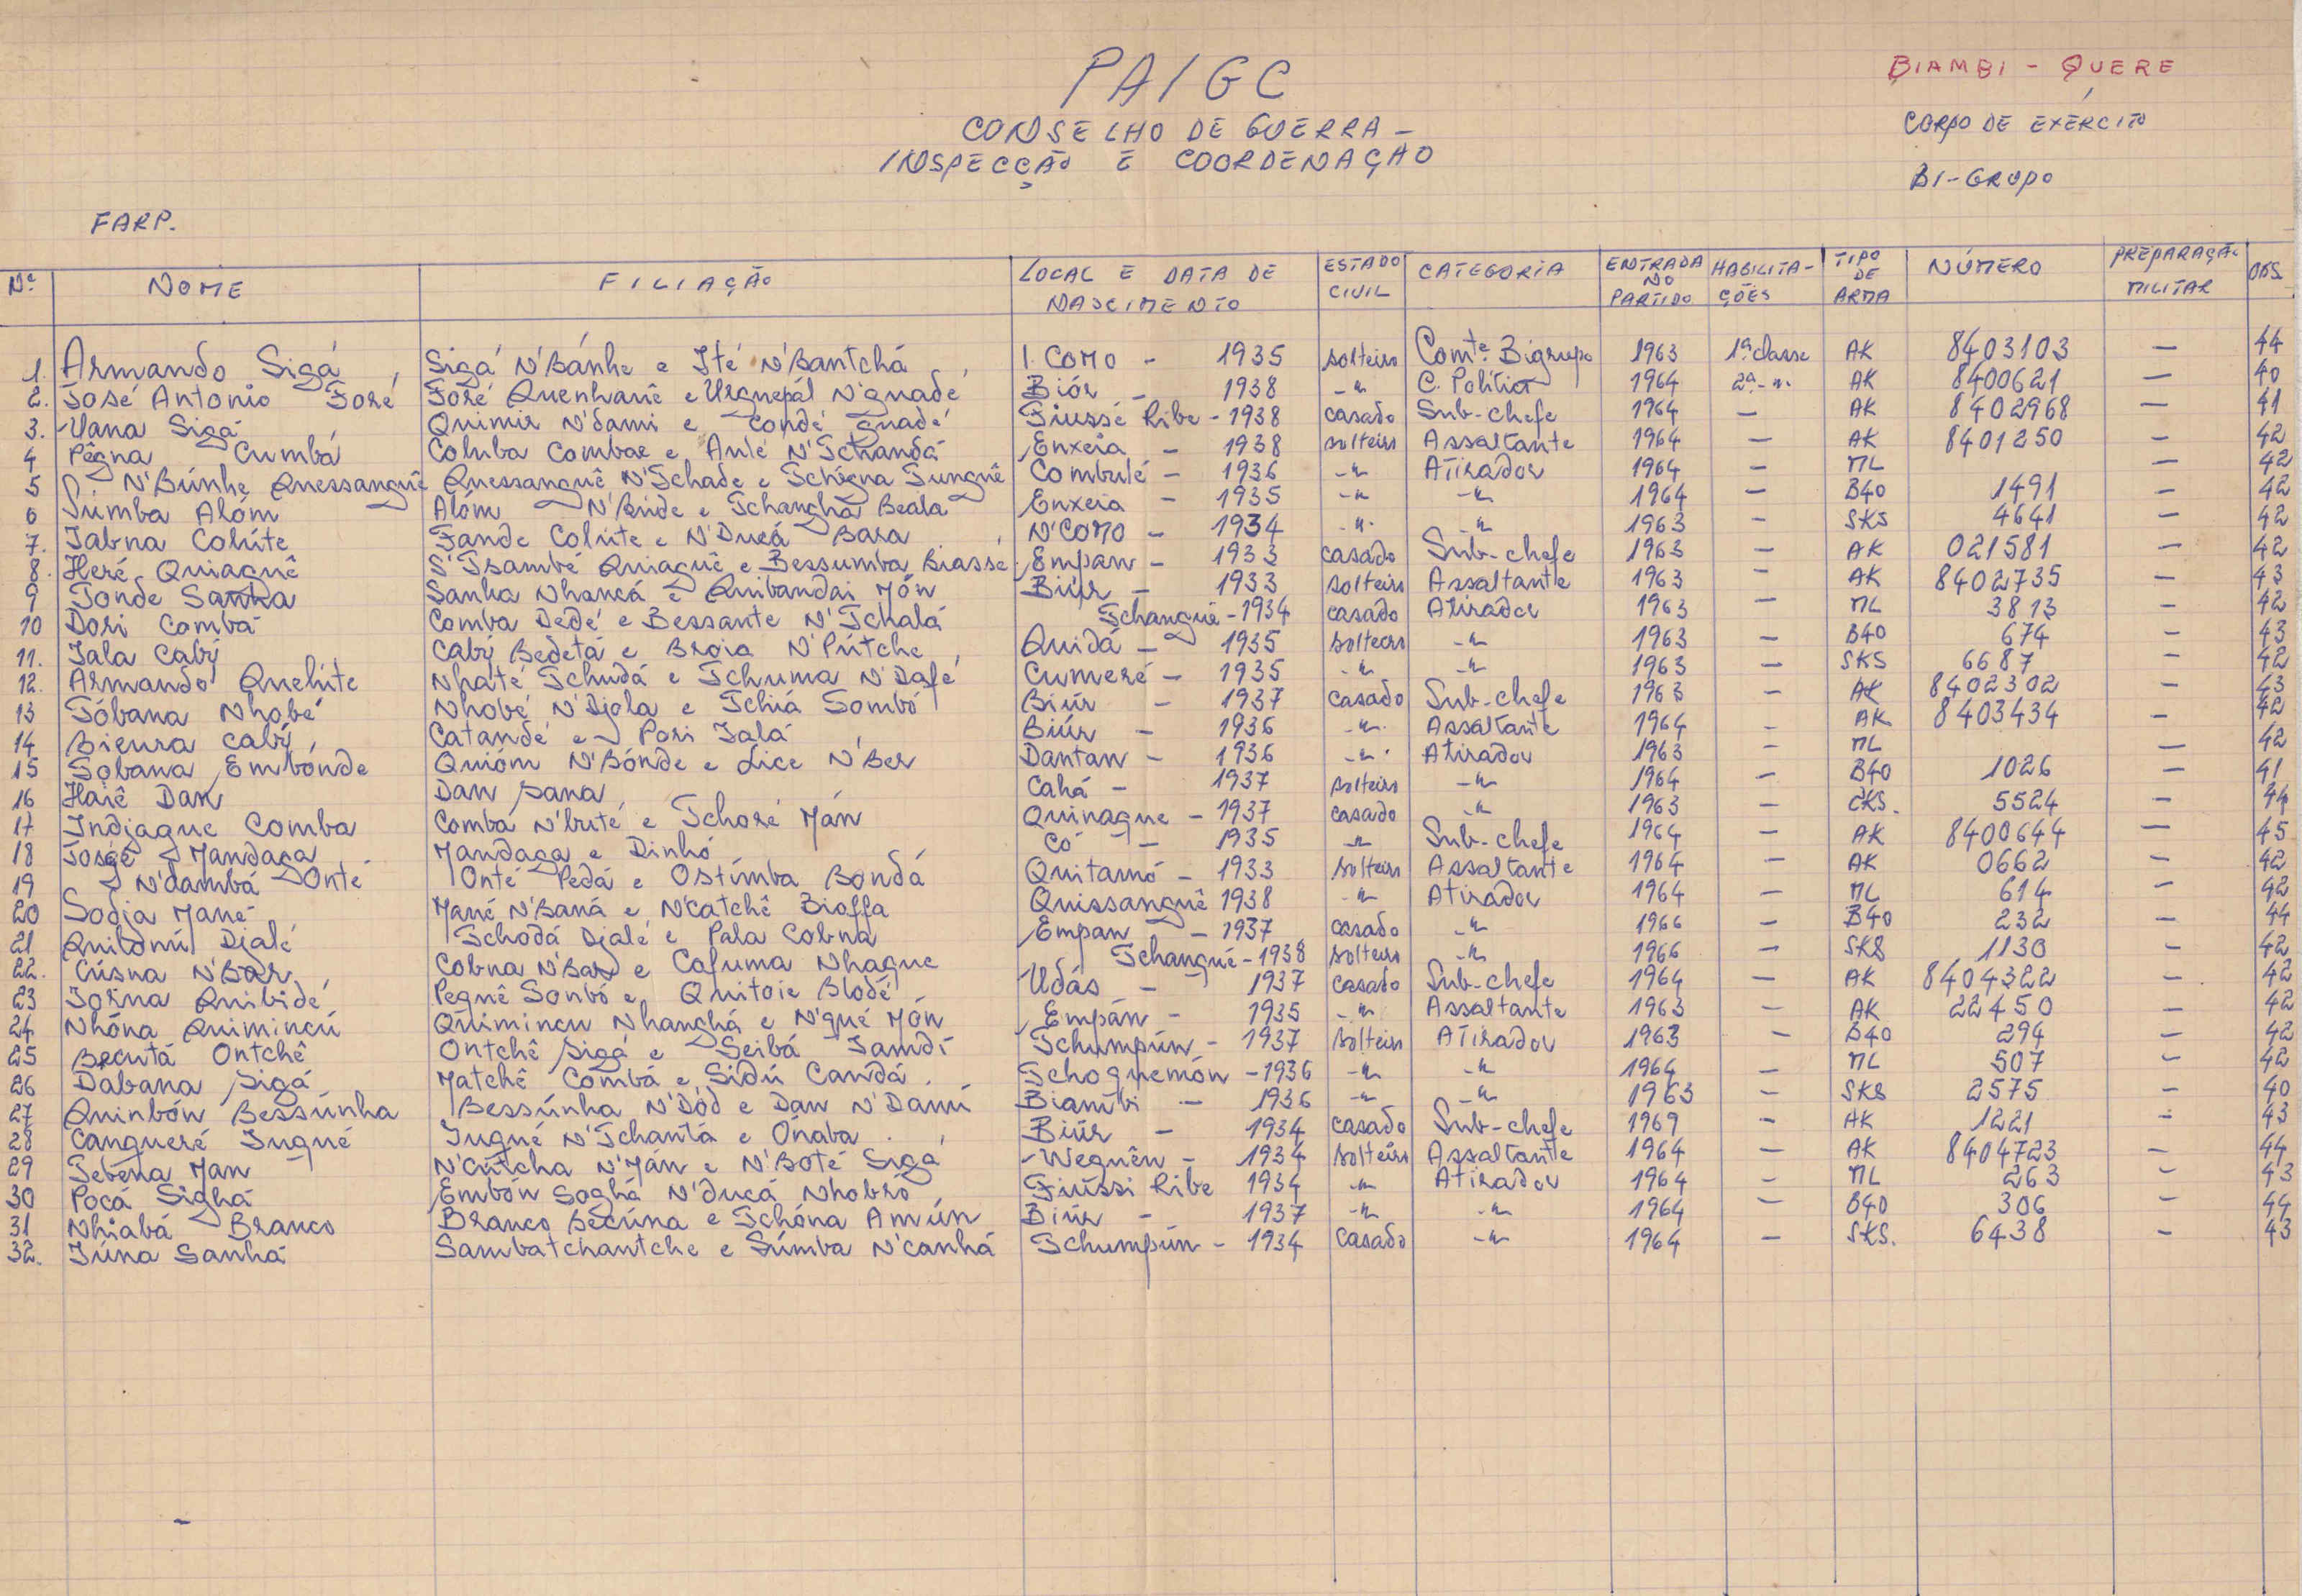 PAIGC
BIAMBI - QUERE
CONSELHO DE GUERRA -
CORPO DE EXÉRCITO
INSPECÇÃO E COORDENAÇÃO
BI-GRUPO
FARP.
Nº NOME FILIAÇÃO LOCAL E DATA DE NASCIMENTO ESTADO CIVIL CATEGORIA ENTRADA NO PARTIDO HABILITAÇÕES TIPO DE ARMA NÚMERO PREPARAÇÃO MILITAR OBS.
1. Armando Sigá Sigá N'Bánhe e Ité N'Bantchá I. Como - 1935 solteiro Comte. Bigrupo 1963 1ª classe AK 8403103 — 44
2. José Antonio Foré Foré Quenhanê e N'guadé Biór - 1938 -"- C. Politico 1964 2ª -"- AK 8400621 — 40
3. Uana Sigá Quimir N'dami e Condé guadé Fiussé Ribe - 1938 casado Sub-chefe 1964 — AK 8402968 — 41
4 Pêgna Cumbá Coluba Combae e Aulé N'Tchandá Enxeia - 1938 solteiro Assaltante 1964 — AK 8401250 — 42
5 N'Búnhe Quessanguê Quessanguê N'Tchade e Tchégna Tunguê Combulé - 1936 -"- Atirador 1964 — ML — 42
6 Súmba Alóm Alóm N'Binde e Tchanghá Beala Enxeia - 1935 -"- -"- 1964 — B40 1491 — 42
7. Tabna Colúte Fande Colúte e N'Ducá Basa N'Como - 1934 -"- -"- 1963 — SKS 4641 — 42
8. Heré Quiaguê S'Tsambé Quiaguê e Bessumba Biasse Empan - 1933 casado Sub-chefe 1963 — AK 021581 — 42
9 Tonde Sanha Sanha Nhancá e Quibandai Món Biúr - 1933 solteiro Assaltante 1963 — AK 8402735 — 43
10 Dori Combá Comba Dedé e Bessante N'Tchalá Tchangué - 1934 casado Atirador 1963 — ML 3813 — 42
11. Iala Cabÿ Cabÿ Bedetá e Broia N'Pútche Quidá - 1935 solteiro -"- 1963 — B40 674 — 43
12. Armando Quelúte Nhaté Tchudá e Tchuma N'Dafé Cumeré - 1935 -"- -"- 1963 — SKS 6687 — 42
13 Tóbana Nhobé Nhobé N'Djola e Tchiá Sombó Biúr - 1937 casado Sub-chefe 1963 — AK 8402302 — 43
14 Bieura Cabÿ Catandé e Pori Ialá Biúr - 1936 -"- Assaltante 1964 — AK 8403434 — 42
15 Tobana Embonde Quióm N'Bónde e Lice N'Ber Dantan - 1936 -"- Atirador 1963 — ML — 42
16 Haiê Dan Dan sana Cahá - 1937 solteiro -"- 1964 — B40 1026 — 41
17 Indjague Comba Comba N'buté e Tchoré Mán Quinaque - 1937 casado -"- 1963 — CKS. 5524 — 44
18 José Mandaga Mandaga e Dinhó Có - 1935 -"- Sub-chefe 1964 — AK 8400644 — 45
19 N'dambá Onté Onté Pedá e Ostímba Bondá Quitamó - 1933 solteiro Assaltante 1964 — AK 0662 — 42
20 Sodja Mané Mané N'Baná e N'catchê Bioffa Quissanguê 1938 -"- Atirador 1964 — ML 614 — 42
21 Djalé Tchodá Djalé e Pala Cobna Empan - 1937 casado -"- 1966 — B40 232 — 44
22. Cúsna N'Bar Cobna N'Bar e Cafuma Nhague Tchangué - 1938 solteiro -"- 1966 — SKS 1130 — 42
23 Iorna Quibidé Pegnê Sonbó e Quitoie Blodé Udás - 1937 casado Sub-chefe 1964 — AK 8404322 — 42
24 Nhóna Quimincú Quimincu Nhanghá e N'qué Món Empán - 1935 -"- Assaltante 1963 — AK 22450 — 42
25 Becutá Ontchê Ontchê Sigá e Seibá Iamdí Tchumpún - 1937 solteiro Atirador 1963 — B40 294 — 42
26 Dabana Sigá Matchê Combá e Sidú Candá. Tchoquemón - 1936 -"- -"- 1964 — ML 507 — 42
27 Quinbón Bessúnha Bessúnha N'Dód e Dan N'Danú Biambi - 1936 -"- -"- 1963 — SKS 2575 — 40
28 Cangueré Iugué Iugué N'Tchantá e Onaba. Biúr - 1934 casado Sub-chefe 1969 — AK 1221 — 43
29 Tebéna Man N'Cútcha N'Mán e N'Boté Sigá Weguên - 1934 solteiro Assaltante 1964 — AK 8404723 — 44
30 Pocá Sighá Embón Soghá N'ducá Nhobró Fiússi Ribe 1934 -"- Atirador 1964 — ML 263 — 43
31 Nhiabá Branco Branco Becúna e Tchóna Amún Biúr - 1937 -"- -"- 1964 — B40 306 — 44
32. Iúna Sanhá Sambatchantche e Súmba N'canhá Tchumpún - 1934 casado -"- 1964 — SKS. 6438 — 43